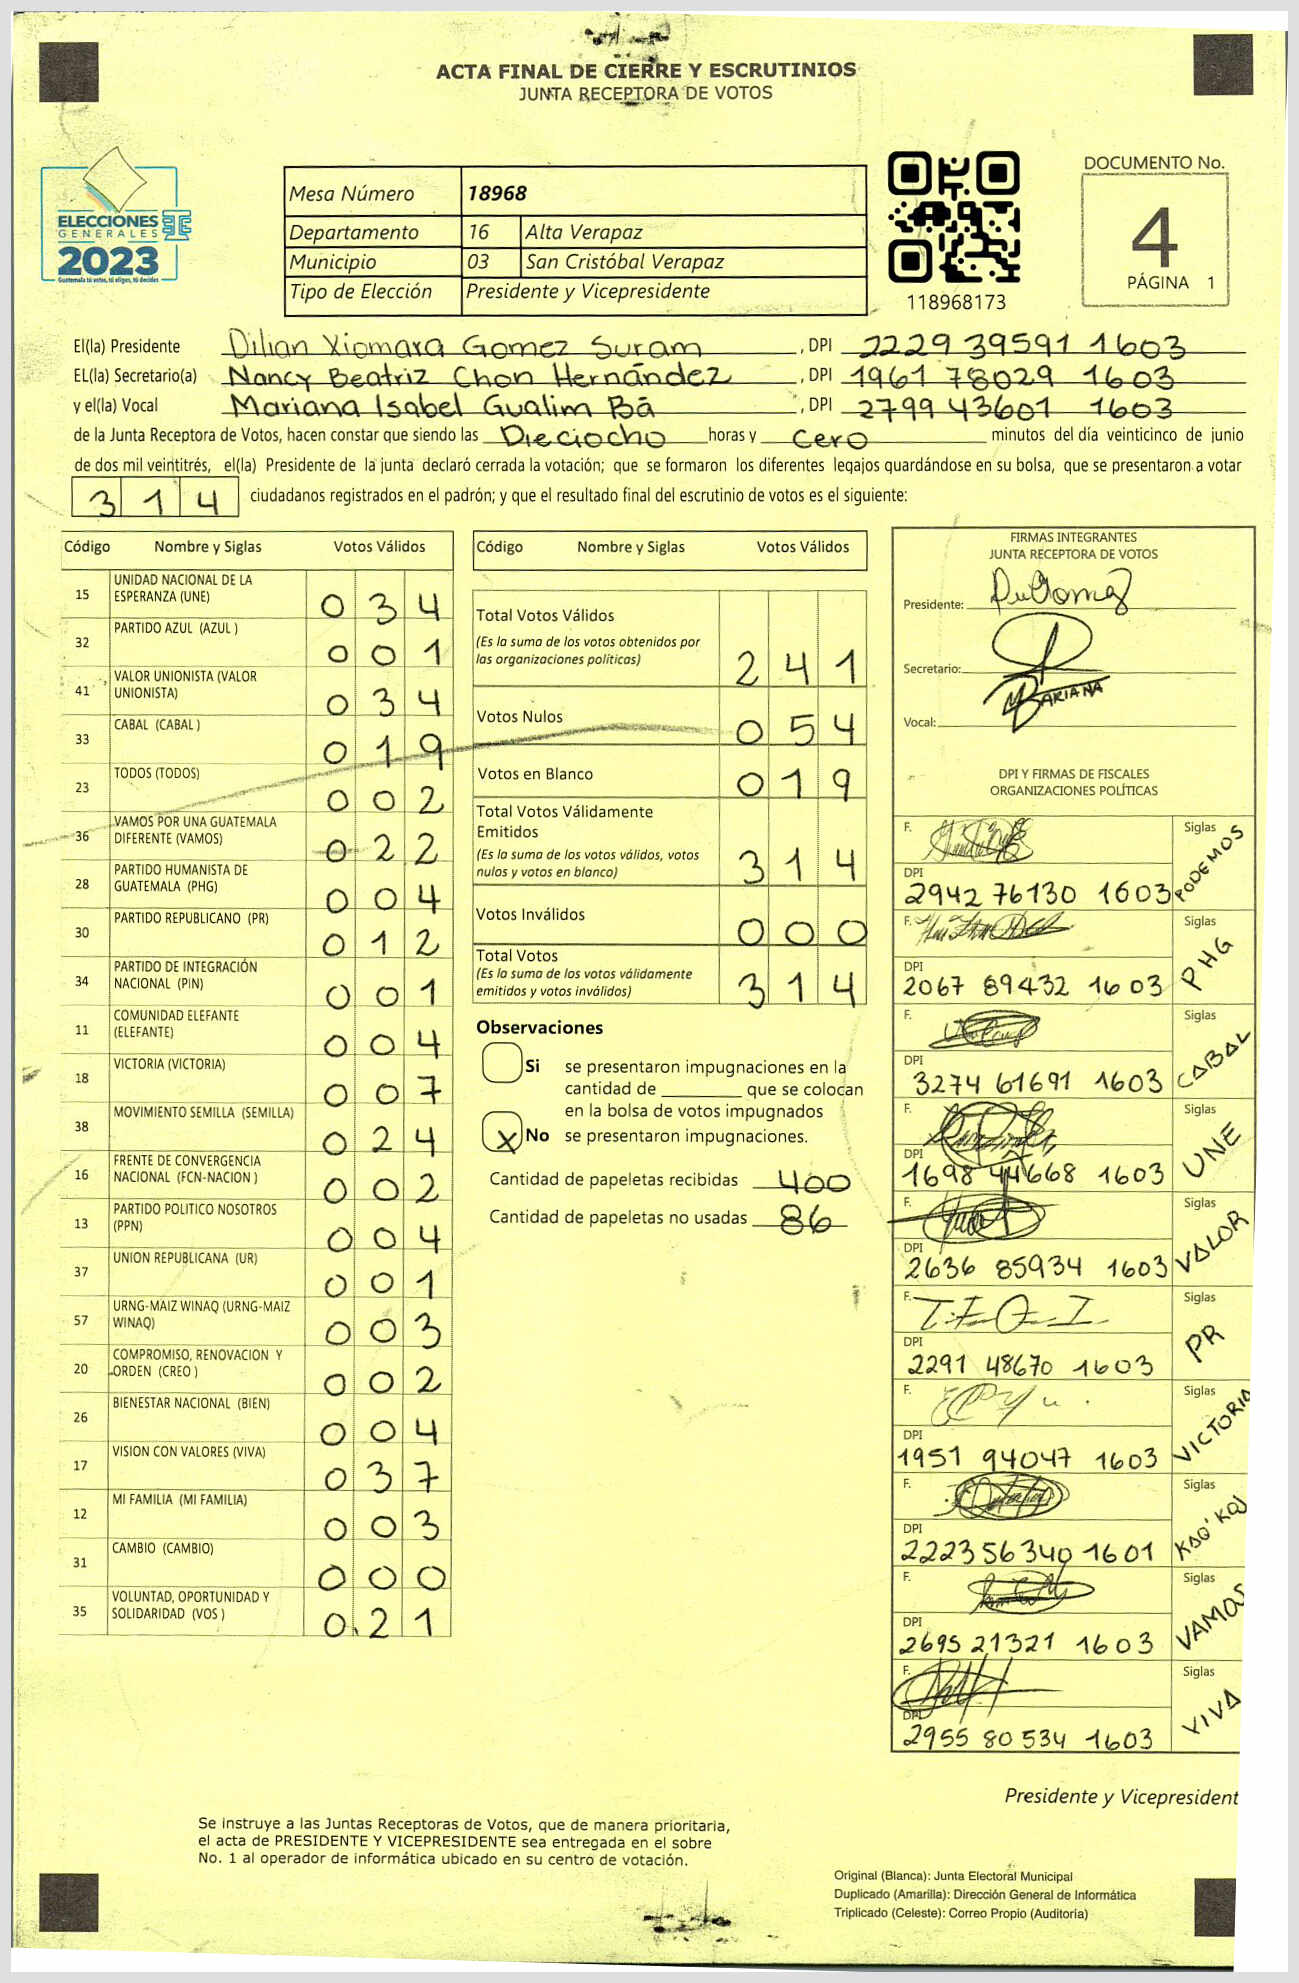 ACTA FINAL DE CIERRE Y ESCRUTINIOS
JUNTA RECEPTORA DE VOTOS
ELECCIONES
GENERALES
2023
Guatemala tú votas, tú eliges, tú decides
Mesa Número 18968
Departamento 16 Alta Verapaz
Municipio 03 San Cristóbal Verapaz
Tipo de Elección Presidente y Vicepresidente
118968173
DOCUMENTO No.
4
PÁGINA 1
El(la) Presidente Dilian Xiomara Gomez Suram, DPI 2229 39591 1603
EL(la) Secretario(a) Nancy Beatriz Chon Hernández, DPI 1961 78029 1603
y el(la) Vocal Mariana Isabel Gualim Bá, DPI 2799 43601 1603
de la Junta Receptora de Votos, hacen constar que siendo las Dieciocho horas y Cero minutos del día veinticinco de junio
de dos mil veintitrés, el(la) Presidente de la junta declaró cerrada la votación; que se formaron los diferentes legajos guardándose en su bolsa, que se presentaron a votar
314 ciudadanos registrados en el padrón; y que el resultado final del escrutinio de votos es el siguiente:
Código Nombre y Siglas Votos Válidos
15 UNIDAD NACIONAL DE LA
ESPERANZA (UNE) 034
32 PARTIDO AZUL (AZUL ) 001
41 VALOR UNIONISTA (VALOR
UNIONISTA) 034
33 CABAL (CABAL ) 019
23 TODOS (TODOS) 002
36 VAMOS POR UNA GUATEMALA
DIFERENTE (VAMOS) 022
28 PARTIDO HUMANISTA DE
GUATEMALA (PHG) 004
30 PARTIDO REPUBLICANO (PR) 012
34 PARTIDO DE INTEGRACIÓN
NACIONAL (PIN) 001
11 COMUNIDAD ELEFANTE
(ELEFANTE) 004
18 VICTORIA (VICTORIA) 007
38 MOVIMIENTO SEMILLA (SEMILLA) 024
16 FRENTE DE CONVERGENCIA
NACIONAL (FCN-NACION ) 002
13 PARTIDO POLITICO NOSOTROS
(PPN) 004
37 UNION REPUBLICANA (UR) 001
57 URNG-MAIZ WINAQ (URNG-MAIZ
WINAQ) 003
20 COMPROMISO, RENOVACION Y
ORDEN (CREO ) 002
26 BIENESTAR NACIONAL (BIEN) 004
17 VISION CON VALORES (VIVA) 037
12 MI FAMILIA (MI FAMILIA) 003
31 CAMBIO (CAMBIO) 000
35 VOLUNTAD, OPORTUNIDAD Y
SOLIDARIDAD (VOS ) 021
Código Nombre y Siglas Votos Válidos
Total Votos Válidos
(Es la suma de los votos obtenidos por
las organizaciones políticas) 241
Votos Nulos 054
Votos en Blanco 019
Total Votos Válidamente
Emitidos
(Es la suma de los votos válidos, votos
nulos y votos en blanco) 314
Votos Inválidos 000
Total Votos
(Es la suma de los votos válidamente
emitidos y votos inválidos) 314
Observaciones
Si se presentaron impugnaciones en la
cantidad de ________ que se colocan
en la bolsa de votos impugnados
X No se presentaron impugnaciones.
Cantidad de papeletas recibidas 400
Cantidad de papeletas no usadas 86
FIRMAS INTEGRANTES
JUNTA RECEPTORA DE VOTOS
Presidente:
Secretario:
Vocal: MARIANA
DPI Y FIRMAS DE FISCALES
ORGANIZACIONES POLÍTICAS
F. Siglas PODEMOS
DPI 2942 76130 1603
F. Siglas PHG
DPI 2067 89432 1603
F. Siglas CABAL
DPI 3274 61691 1603
F. Siglas UNE
DPI 1698 44668 1603
F. Siglas VALOR
DPI 2636 85934 1603
F. Siglas PR
DPI 2291 48670 1603
F. Siglas VICTORIA
DPI 1951 94047 1603
F. Siglas KAQ'KOJ
DPI 2223 56340 1601
F. Siglas VAMOS
DPI 2695 21321 1603
F. Siglas VIVA
DPI 2955 80534 1603
Presidente y Vicepresident
Se instruye a las Juntas Receptoras de Votos, que de manera prioritaria,
el acta de PRESIDENTE Y VICEPRESIDENTE sea entregada en el sobre
No. 1 al operador de informática ubicado en su centro de votación.
Original (Blanca): Junta Electoral Municipal
Duplicado (Amarilla): Dirección General de Informática
Triplicado (Celeste): Correo Propio (Auditoría)